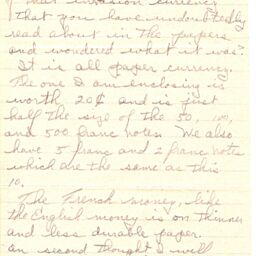 of their invasion currency
that you have undoubtedly
read about in the papers
and wondered what it was?
It is all paper currency.
The one I am enclosing is
worth 20¢ and is just
half the size of the 50, 100,
and 500 franc notes. We also
have 5 franc and 2 franc notes
which are the same as this
10.
The French money, like
the English money is on thinner
and less durable paper.
On second thought I will